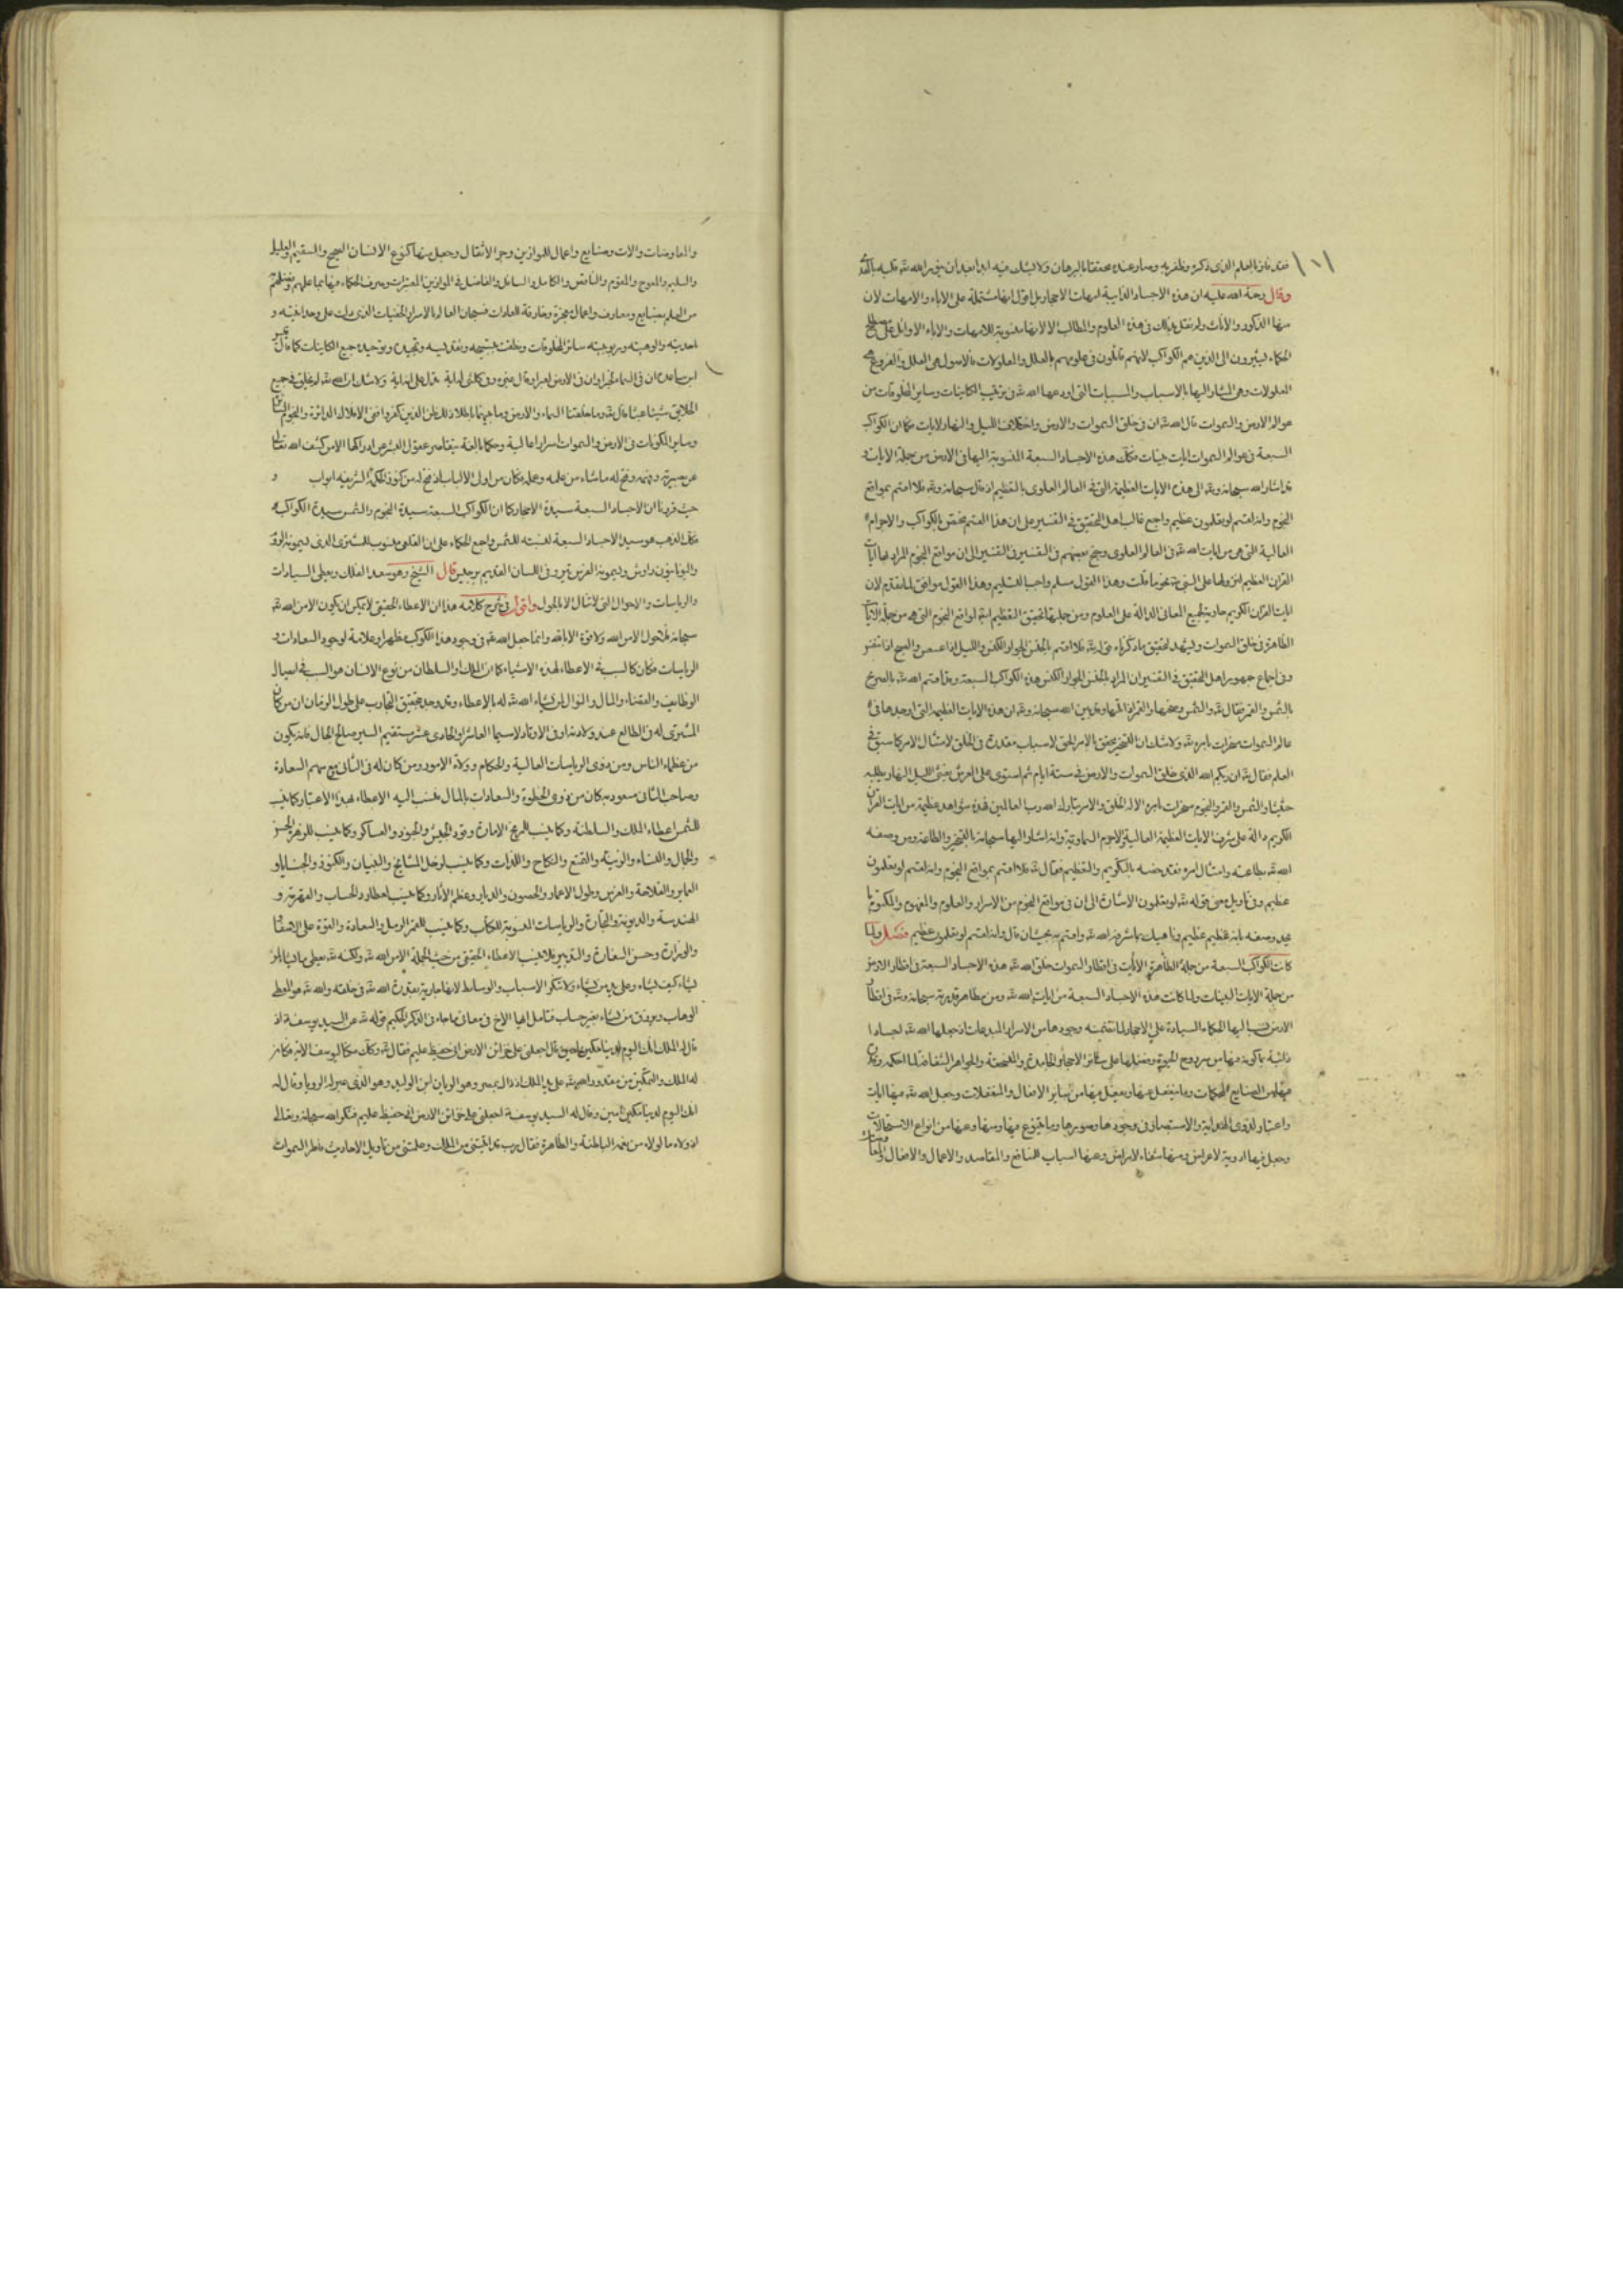 ١٠١
فقد فاز بالعلم الذى ذكره وظفر به وصار عنده محققا بالبرهان ولا يشك فيه ابدا بعد ان ينور الله قلبه
وقال رحمة الله عليه ان هذه الاجساد الذايبة امهات الاحجار بل اقول انها مشتملة على الاباء والامهات لان
منها الذكور والاناث ولم نقل بذلك فى هذه العلوم والمطالب الا لانها منسوبة للامهات والاباء الاوائل على مصطلح
الحكماء يشيرون الى الذين هم الكواكب لانهم قائلون فى علومهم بالعلل والمعلولات فالاصول هى العلل والفروع هى
المعلولات وهى المشار اليها بالاسباب والمسببات التى اودعها الله فى ترتيب الكاينات وساير المخلوقات من
عوالم الارض والسموات قال الله ان فى خلق السموات والارض واختلاف الليل والنهار لايات فكما ان الكواكب
السبعة فى عوالم السموات ايات بينات فكذلك هذه الاجساد السبعة المنسوبة اليها فى الارض من جملة الايات و
قد اشار الله سبحانه الى هذه الايات العظيمة التى فى العالم العلوى بالتعظيم اذ قال سبحانه فلا اقسم بمواقع
النجوم وانه لقسم لو تعلمون عظيم واجمع غالب اهل التحقيق فى التفسير على ان هذا القسم مختص بالكواكب والاجرام
العالية التى هى من ايات الله فى العالم العلوى وجنح بعضهم فى التفسير الى ان مواقع النجوم المراد بها ايات
القران العظيم وهذا القول مسلم واجب التسليم وهذا القول موافق لما تقدم لان
ايات القران الكريم حاوية لجميع المعانى الدالة على العلوم ومن جملتها تحقيق التعظيم لمواقع النجوم التى هى من جملة الايات
الظاهرة فى خلق السموات ويشهد لتحقيق ما ذكرناه قوله فلا اقسم بالخنس الجوار الكنس والليل اذا عسعس والصبح اذا تنفس
وفى اجماع جمهور اهل التحقيق فى التفسير ان المراد بالخنس الجوار الكنس هذه الكواكب السبعة وقد اقسم الله بالصريح
بالشمس والقمر فقال والشمس وضحيها والقمر اذا تليها وقد بين الله سبحانه ان هذه الايات العظيمة التى اوجدها فى
عالم السموات مسخرات بامره ولا شك ان التسخير محقق بالامر الحق لاسباب مقدرة فى الخلق لامتثال الامر كما سبق فى
العلم فقال ان ربكم الله الذى خلق السموات والارض فى ستة ايام ثم استوى على العرش يغشى الليل النهار يطلبه
حثيثا والشمس والقمر والنجوم مسخرات بامره الا له الخلق والامر تبارك الله رب العالمين فهذه شواهد عظيمة من ايات القران
الكريم دالة على شرف الايات العظيمة العالية والاجرام السماوية وانه اشار اليها سبحانه بالتسخير والطاعة ومن وصفه
الله بطاعته وامتثال امره فقد خصه بالتكريم والتعظيم فقال فلا اقسم بمواقع النجوم وانه لقسم لو تعلمون
عظيم وفى تاويل معنى قوله لو تعلمون الاشارة الى ان فى مواقع النجوم من الاسرار والعلوم والمفهوم والمكتوم ما
يجد وصفه بانه عظيم عظيم وناهيك بما شرفه الله واقسم به بحيث ان قال وانه لقسم لو تعلمون عظيم فصل ولما
كانت الكواكب السبعة من جملة الظاهرة الايات فى اقطار السموات خلق الله هذه الاجساد السبعة فى اقطار الارض
من جملة الايات البينات ولما كانت هذه الاجساد السبعة من ايات الله ومن مظاهر قدرته سبحانه فى اقطار
الارض نسب اليها الحكماء السيادة على الاحجار لما تقتضيه وجودها من الاسرار المبدعات اذ جعلها الله اجسادا
ذائبة بما كونه فيها من روح الحيوة وفضلها على سائر الاحجار الجامدة والجواهر الشفافة
فيها من الصنايع المحكمات وما ينفعل عنها ويفعل فيها من ساير الافعال والمنفعلات وجعل الله فيها ايات
واعتبار لذوى الهداية والاستبصار فى وجودها وصورها وما يتنوع فيها ومنها وعنها من انواع الاستحالات
وجعل فيها ادوية لاعراض ومنها شفاء لامراض وعنها اسباب للمنافع والمقاصد والاعمال والافعال
والمعاوضات والات وصنايع واعمال للموازين وجر الاثقال وجعل منها كنوع الانسان الصحيح والسقيم والعليل
والسليم والمعوج والمقوم والناقص والكامل والسائل والفاضل فى الموازين المعتبرات وصرف الحكماء فيها بما علمهم
من العلم بصنايع ومعارف واعمال معجزة وخارقة للعادات فسبحان العالم بالاسرار الخفيات الذى دلت على وحدانيته و
احديته والوهيته وربوبيته سائر المخلوقات ونطقت بتسبيحه وتقديسه وتمجيده وتوحيده جميع الكاينات كما قال
ابن ساعدة ان فى السماء لخبرا وان فى الارض لعبرا ولا شك ان الله لم يخلق فى جميع
الخلايق شيئا عبثا قال وما خلقنا السماء والارض وما بينهما باطلا ذلك ظن الذين كفروا ففى الافلاك الدائرة والنجوم
وساير المكونات فى الارض والسموات اسرار عالية وحكما بالغة يتقاصر عقول البشر عن ادراكها الا من كشف الله تعالى
عن بصيرته وفهمه وفتح له ما شاء من علمه وعمله فكان من اولى الالباب اذ فتح له من كنوز الحكمة الشريفة ابواب و
حيث قررنا ان الاجساد السبعة سيدة الاحجار كما ان الكواكب السبعة سيدة النجوم والشمس سيدة الكواكب
فكذلك الذهب هو سيد الاجساد السبعة لنسبته للشمس واجمع الحكماء على ان القلعى منسوب للمشترى الذى
واليونانيون زاوش ويسمونه الفرس وفى اللسان القديم برجيس قال الشيخ وهو سعد الفلك ويعطى السيادات
والرياسات والاحوال التى لا تنال الا بالحول واقول فى شرح كلامه هذا ان الاعطاء الحقيقى لا يمكن ان يكون الا من الله
سبحانه فلا حول الا من الله ولا قوة الا بالله وانما جعل الله فى وجود هذا الكوكب مظهرا وعلامة لوجود السعادات و
الرياسات فكان كالسبب فى الاعطاء لهذه الاشياء كما ان الملك والسلطان من نوع الانسان هو السبب فى ايصال
الوظايف والغناء والمال والنوال لمن يشاء الله له بالاعطاء وقد وجد بتحقيق التجارب على طول الزمان ان من كان
المشترى له فى الطالع عند ولادته او فى الاوتاد لا سيما العاشر او الحادى عشر مستقيم السير صالح الحال فانه يكون
من عظماء الناس ومن ذوى الرياسات العالية والحكام وولاة الامور ومن كان له فى الثانى مع سهم السعادة
وصاحب الثانى مسعود به كان من ذوى الحظوة والسعادات بالمال فنسب اليه الاعطاء بهذا الاعتبار كما ينسب
للشمس اعطاء الملك والسلطنة وكما ينسب للمريخ الامارة وقود الجيش والجنود والعساكر وكما ينسب للزهرة الحسن
والجمال والنساء والزينة والتمتع والنكاح واللذات وكما ينسب لزحل المشايخ والبنيان والكنوز والخبايا و
العماير والفلاحة والغرس وطول الاعمار والحصون والديار وعظم الاثار وكما ينسب لعطارد الحساب والقهرمة و
الهندسة والديونة والتجارة والرياسات المنسوبة للكتاب وكما ينسب للقمر الرسل والسعادة والقوة على
والوزارة وحسن السفارة والتدبير فلا ينسب الاعطاء الحقيقى من حيث الجملة الا من الله ولكنه يعطى ما يشاء لمن
يشاء كيف يشاء وعلى يد من يشاء ولا تنكر الاسباب والوسايط لانها جارية بقدرة الله فى خلقه والله هو المعطى
الوهاب ويرزق من يشاء بغير حساب فتامل ايها الاخ فى معانى ما جاء فى الذكر الحكيم قوله عن السيد يوسف اذ
قال له الملك انك اليوم لدينا مكين امين قال اجعلنى على خزائن الارض انى حفيظ عليم فقال وكذلك مكنا ليوسف الاية فكان
له الملك والتمكين من على يد الملك اذ ذاك بمصر وهو الريان ابن الوليد وهو الذى عبر له الرويا وقال له
انك اليوم لدينا مكين امين وقال له السيد يوسف اجعلنى على خزائن الارض انى حفيظ عليم فشكر الله سبحانه وتعالى
اذ ولاه ما اولاه من نعمه الباطنة والظاهرة فقال رب قد اتيتنى من الملك وعلمتنى من تاويل الاحاديث فاطر السموات